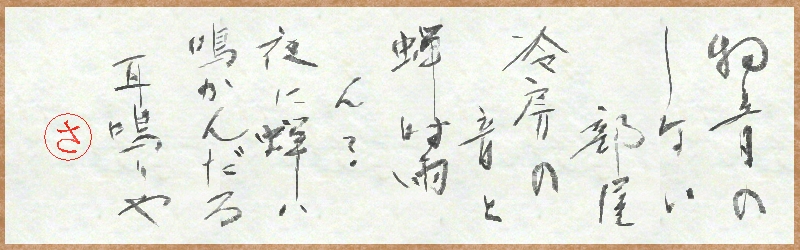 物音の
しない
部屋
冷房の
音と
蝉時雨
ん?
夜に蝉ハ
鳴かんだろ
耳鳴りや
さ